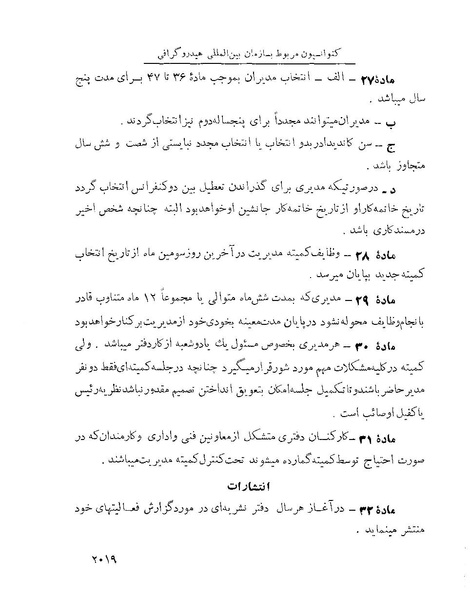 کنوانسیون مربوط بسازمان بین‌المللی هیدروگرافی
مادهٔ ۲۷ - الف - انتخاب مدیران بموجب مادهٔ ۳۶ تا ۴۷ برای مدت پنج
سال میباشد .
ب - مدیران میتوانند مجدداً برای پنجساله دوم نیز انتخاب گردند .
ج - سن کاندیدا در بدو انتخاب یا انتخاب مجدد نبایستی از شصت و شش سال
متجاوز باشد .
د - در صورتیکه مدیری برای گذراندن تعطیل بین دو کنفرانس انتخاب گردد
تاریخ خاتمه کار او از تاریخ خاتمه کار جانشین او خواهد بود البته چنانچه شخص اخیر
در مسند کاری باشد .
مادهٔ ۲۸ - وظایف کمیته مدیریت در آخرین روز سومین ماه از تاریخ انتخاب
کمیته جدید بپایان میرسد .
مادهٔ ۲۹ - مدیری که بمدت شش ماه متوالی یا مجموعاً ۱۲ ماه متناوب قادر
بانجام وظایف محوله نشود در پایان مدت معینه بخودی خود از مدیریت بر کنار خواهد بود
مادهٔ ۳۰ - هر مدیری بخصوص مسئول یک یا دو شعبه از کار دفتر میباشد . ولی
کمیته در کلیه مشکلات مهم مورد شور قرار میگیرد چنانچه در جلسه کمیته‌ای فقط دو نفر
مدیر حاضر باشند و تا تکمیل جلسه امکان بتعویق انداختن تصمیم مقدور نباشد نظریه رئیس
یا کفیل او صائب است .
مادهٔ ۳۱ - کارکنان دفتری متشکل از معاونین فنی واداری و کارمندان که در
صورت احتیاج توسط کمیته گمارده میشوند تحت کنترل کمیته مدیریت میباشند .
انتشارات
مادهٔ ۳۲ - در آغاز هر سال دفتر نشریه‌ای در مورد گزارش فعالیتهای خود
منتشر مینماید .
۲۰۱۹